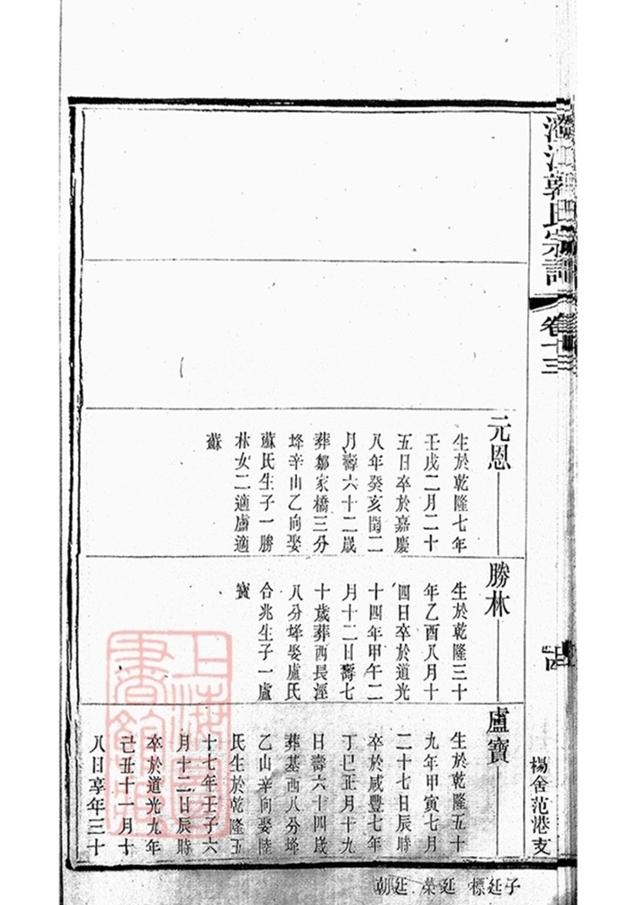 澄江郭氏宗譜
卷十三
楊舍范港支
元恩
生於乾隆七年
壬戌二月二十
五日卒於嘉慶
八年癸亥閏二
月壽六十二歲
葬鄒家橋三分
埄辛山乙向娶
蘇氏生子一勝
林女二適盧適
蘇
勝林
生於乾隆三十
年乙酉八月十
四日卒於道光
十四年甲午二
月十二日壽七
十歲葬西長涇
八分埄娶盧氏
合兆生子一盧
寶
盧寶
生於乾隆五十
九年甲寅七月
二十七日辰時
卒於咸豐七年
丁巳正月十九
日壽六十四歲
葬基西八分埄
乙山辛向娶陸
氏生於乾隆五
十七年壬子六
月十二日辰時
卒於道光九年
己丑十一月十
八日享年三十
子廷標 廷榮 廷朝
上海圖書館藏